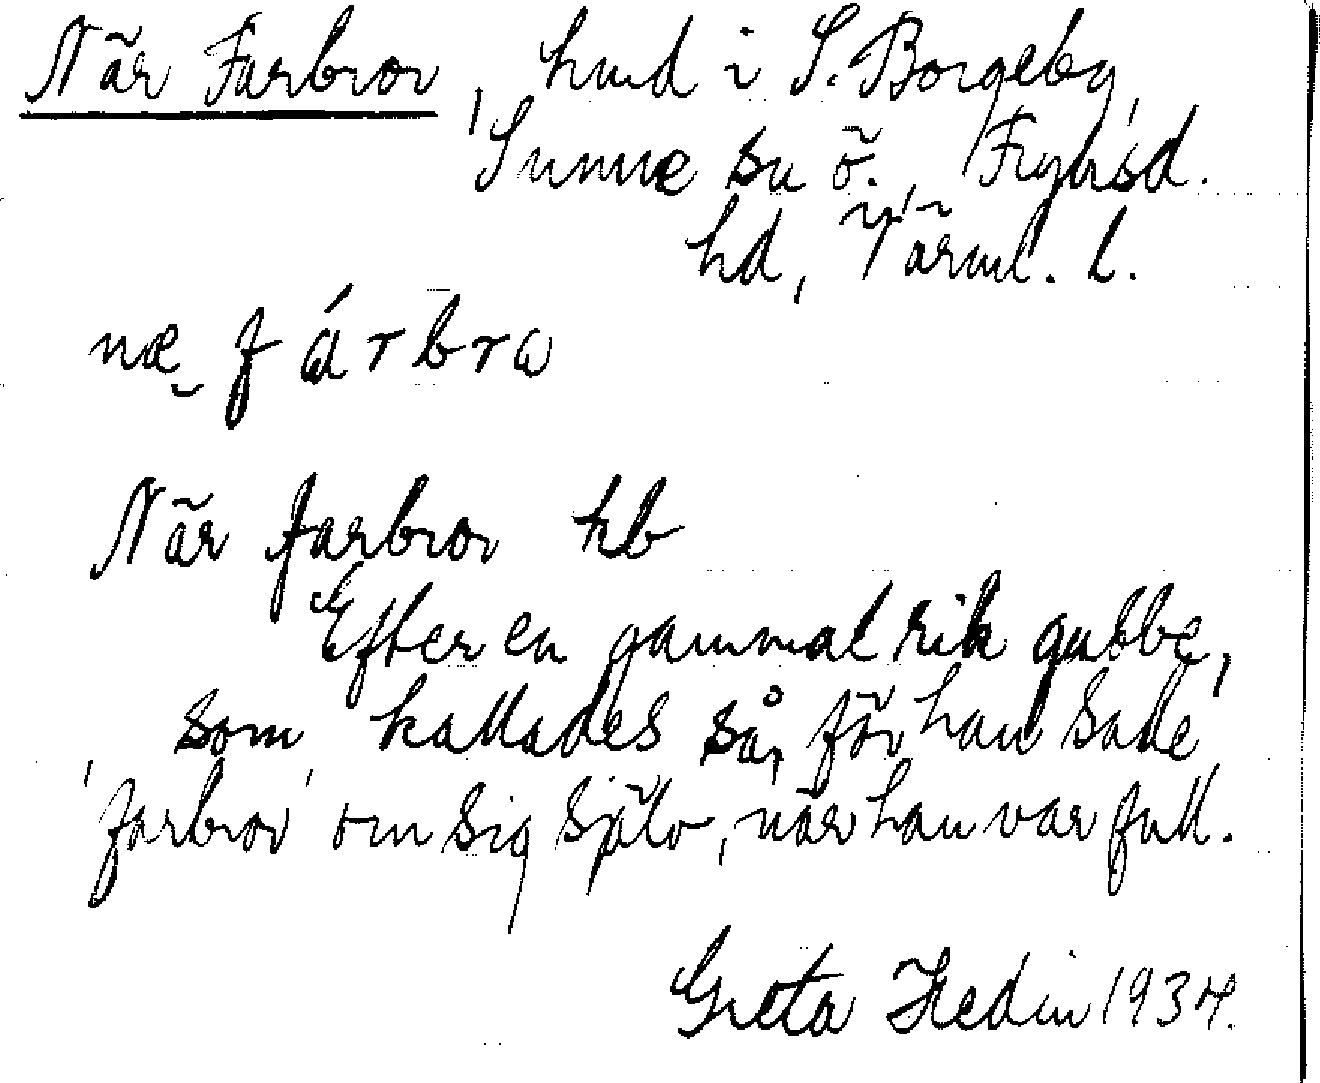 När Farbror, hmd i S. Borgeby,
Sunne sn ö., Fryksd.
hd, Värml. l.
næ̰ fárbra
När farbror hb
Efter en gammal rik gubbe,
som kallades så, för han sade
'farbror' om sig själv, när han var full.
Greta Hedin 1934.